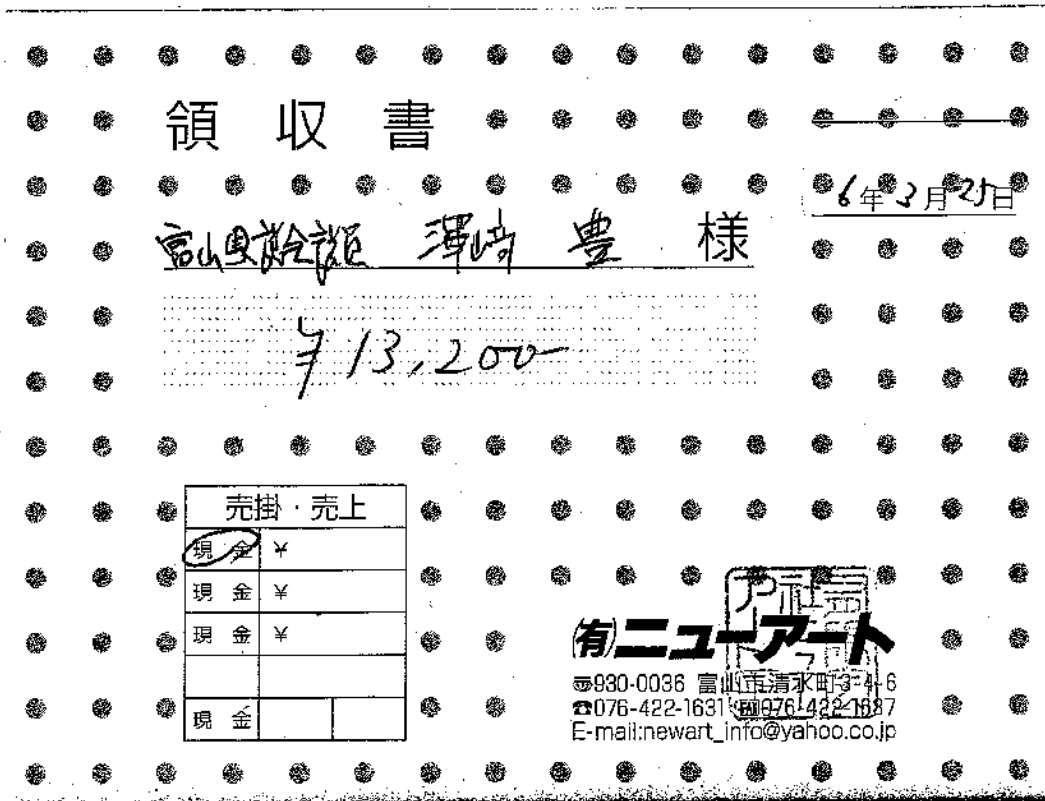 領収書
6年3月25日
富山県議会議員 澤崎 豊 様
¥13,200-
売掛・売上
現金 ¥
現金 ¥
現金 ¥
現金
(有)ニューアート
〒930-0036 富山市清水町3-4-6
☎076-422-1631 FAX 076-422-1687
E-mail:newart_info@yahoo.co.jp